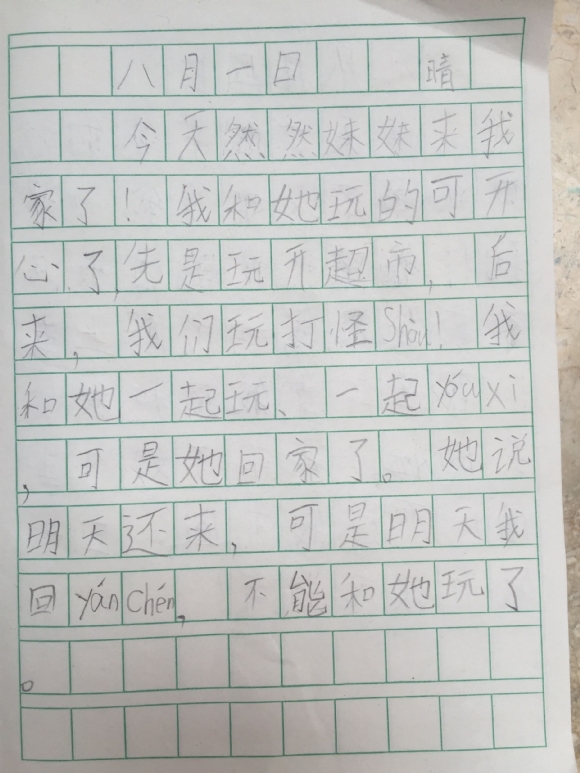 八月一日 晴
今天然然妹妹来我
家了！我和她玩的可开
心了，先是玩开超市，后
来，我们玩打怪Shòu！我
和她一起玩、一起yóuxì
，可是她回家了。她说
明天还来，可是明天我
回yánChén，不能和她玩了
。